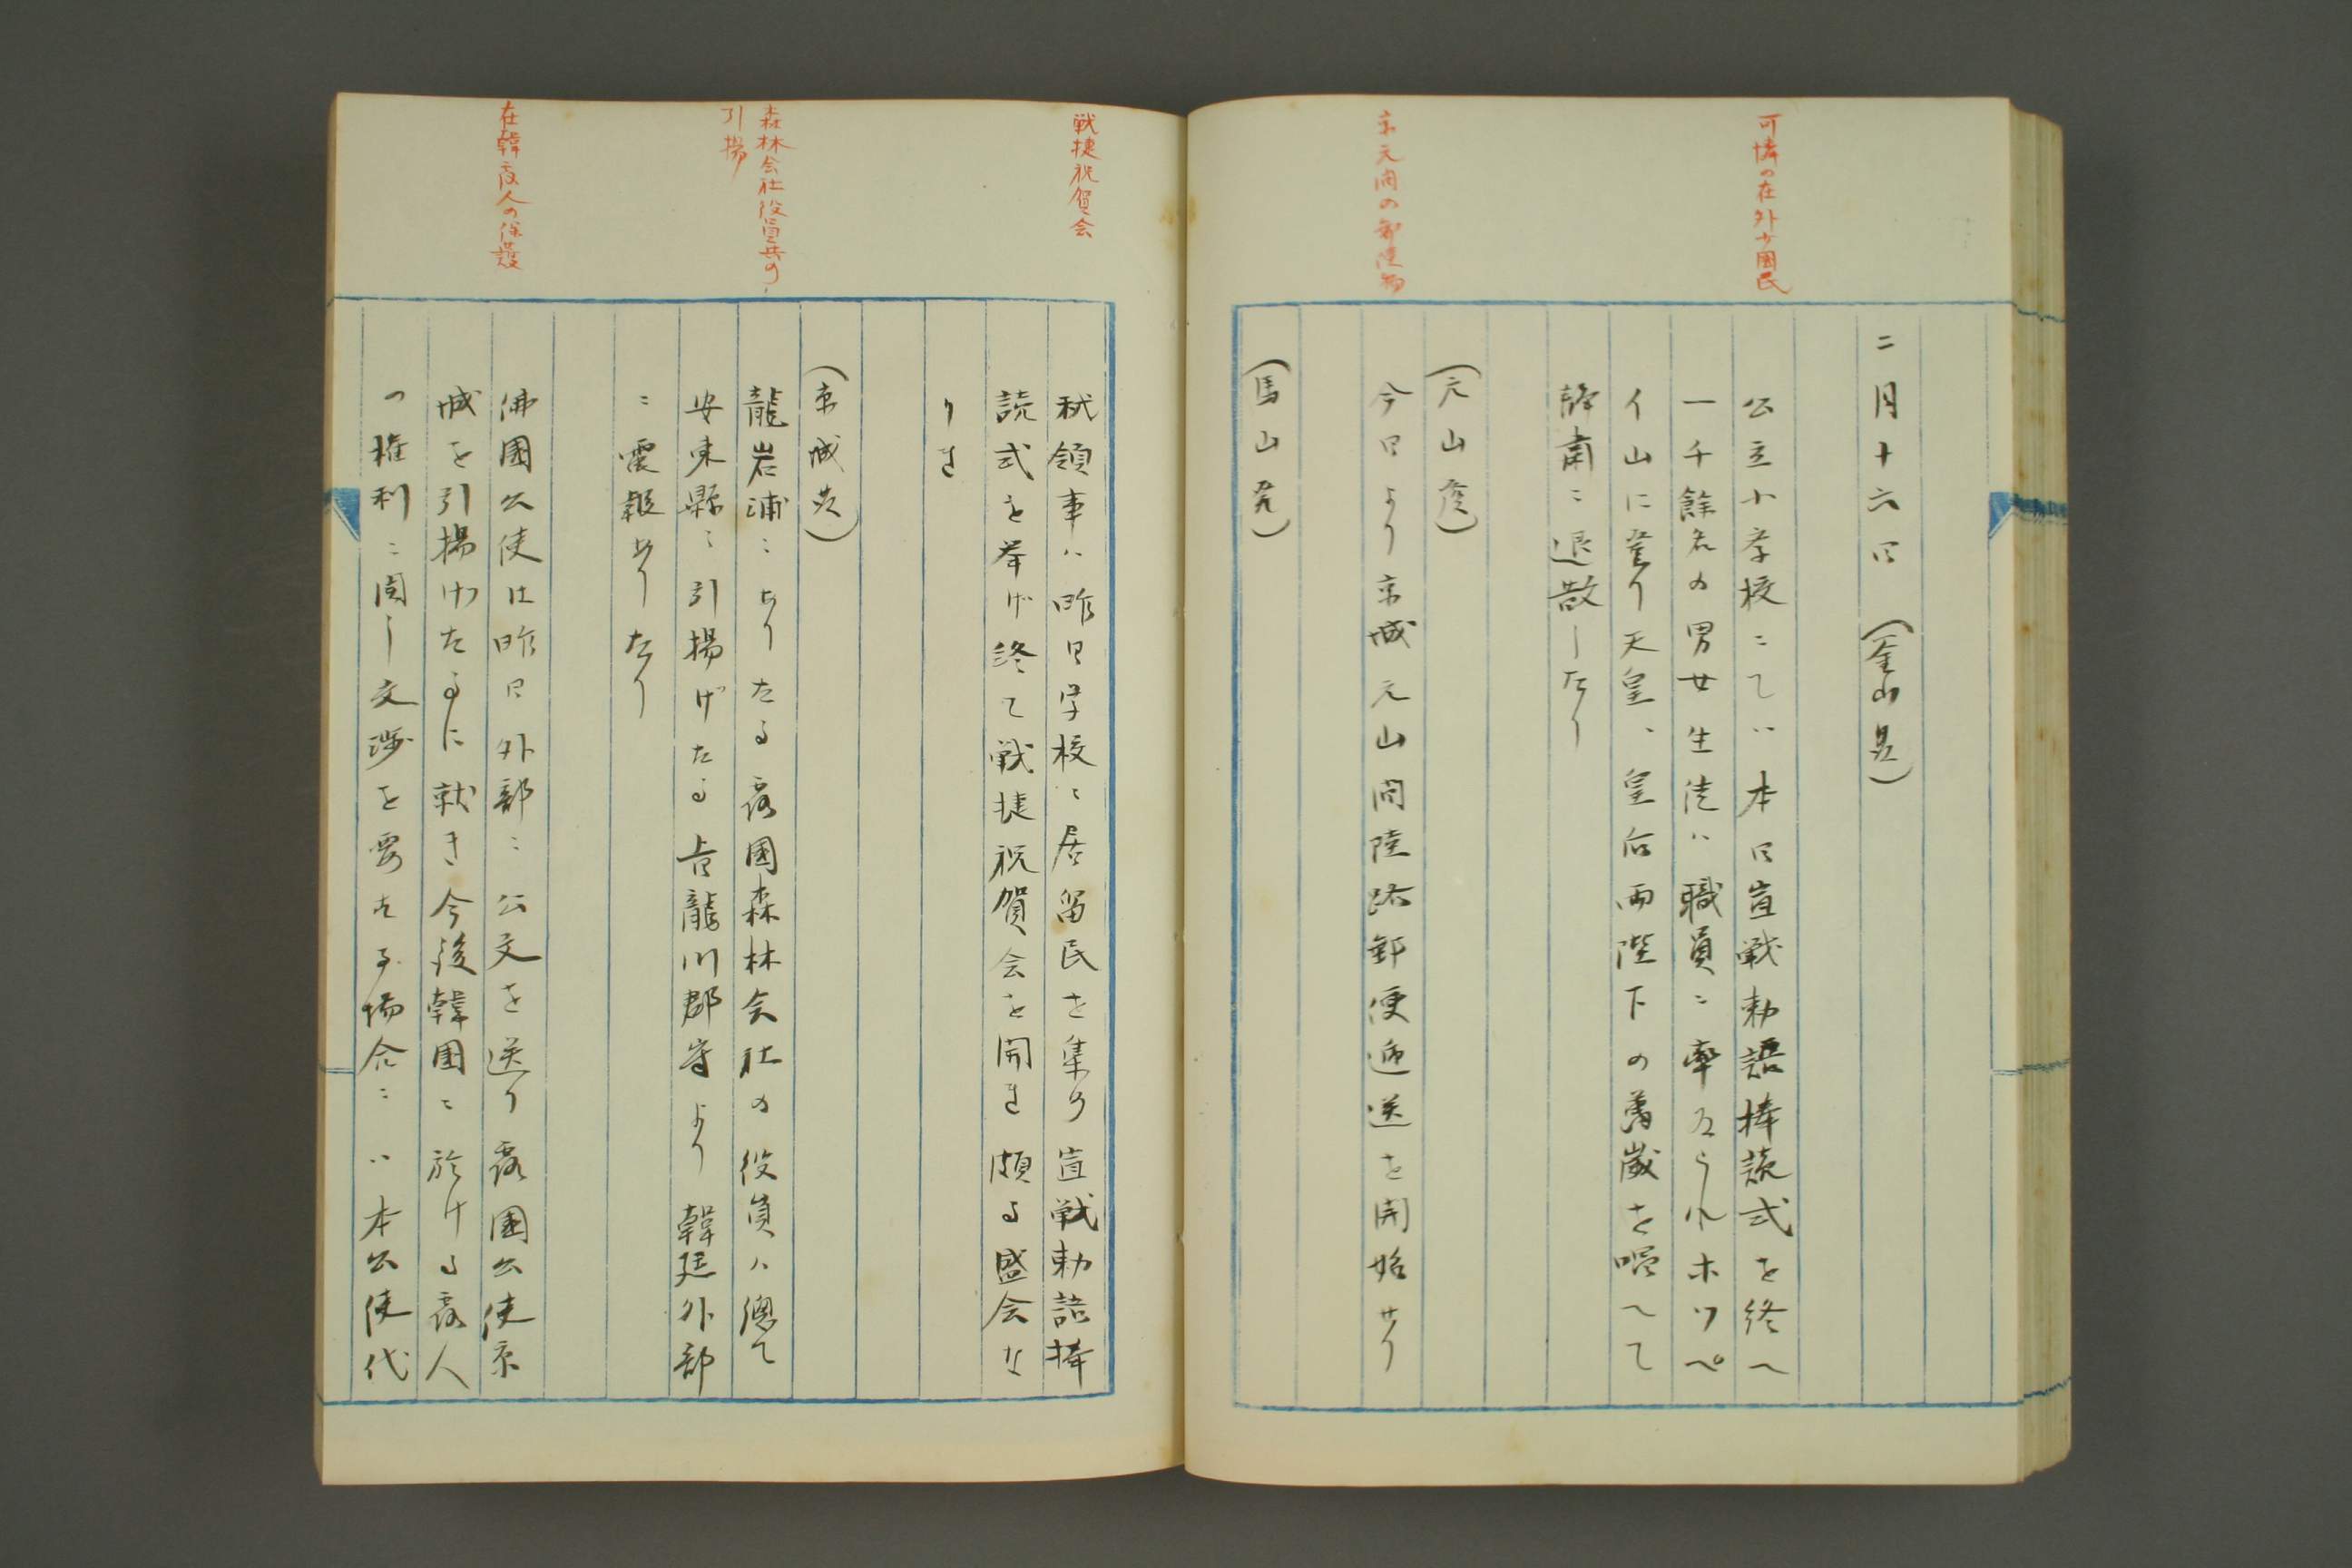 可憐の在外少國民
二月十六日（釜山発）
公立小学校にてハ本日宣戦勅語捧読式を終へ
一千餘名の男女生徒ハ職員に率ゐられホツペ
イ山に登り天皇、皇后両陛下の萬歳を唱へて
静粛に退散したり
京元間の郵便物
（元山発）
今日より京城元山間陸路郵便逓送を開始せり
（馬山発）
戦捷祝賀会
秋領事ハ昨日学校に居留民を集め宣戦勅語捧
読式を挙げ終て戦捷祝賀会を開き頗る盛会な
りき
（京城発）
森林会社役員共の
引揚
龍岩浦にありたる露國森林会社の役員ハ總て
安東縣に引揚げたる旨龍川郡守より韓廷外部
に電報ありたり
在韓露人の保護
佛國公使は昨日外部に公文を送り露國公使京
城を引揚げたるに就き今後韓国に於ける露人
の権利に関し交渉を要する場合にハ本公使代